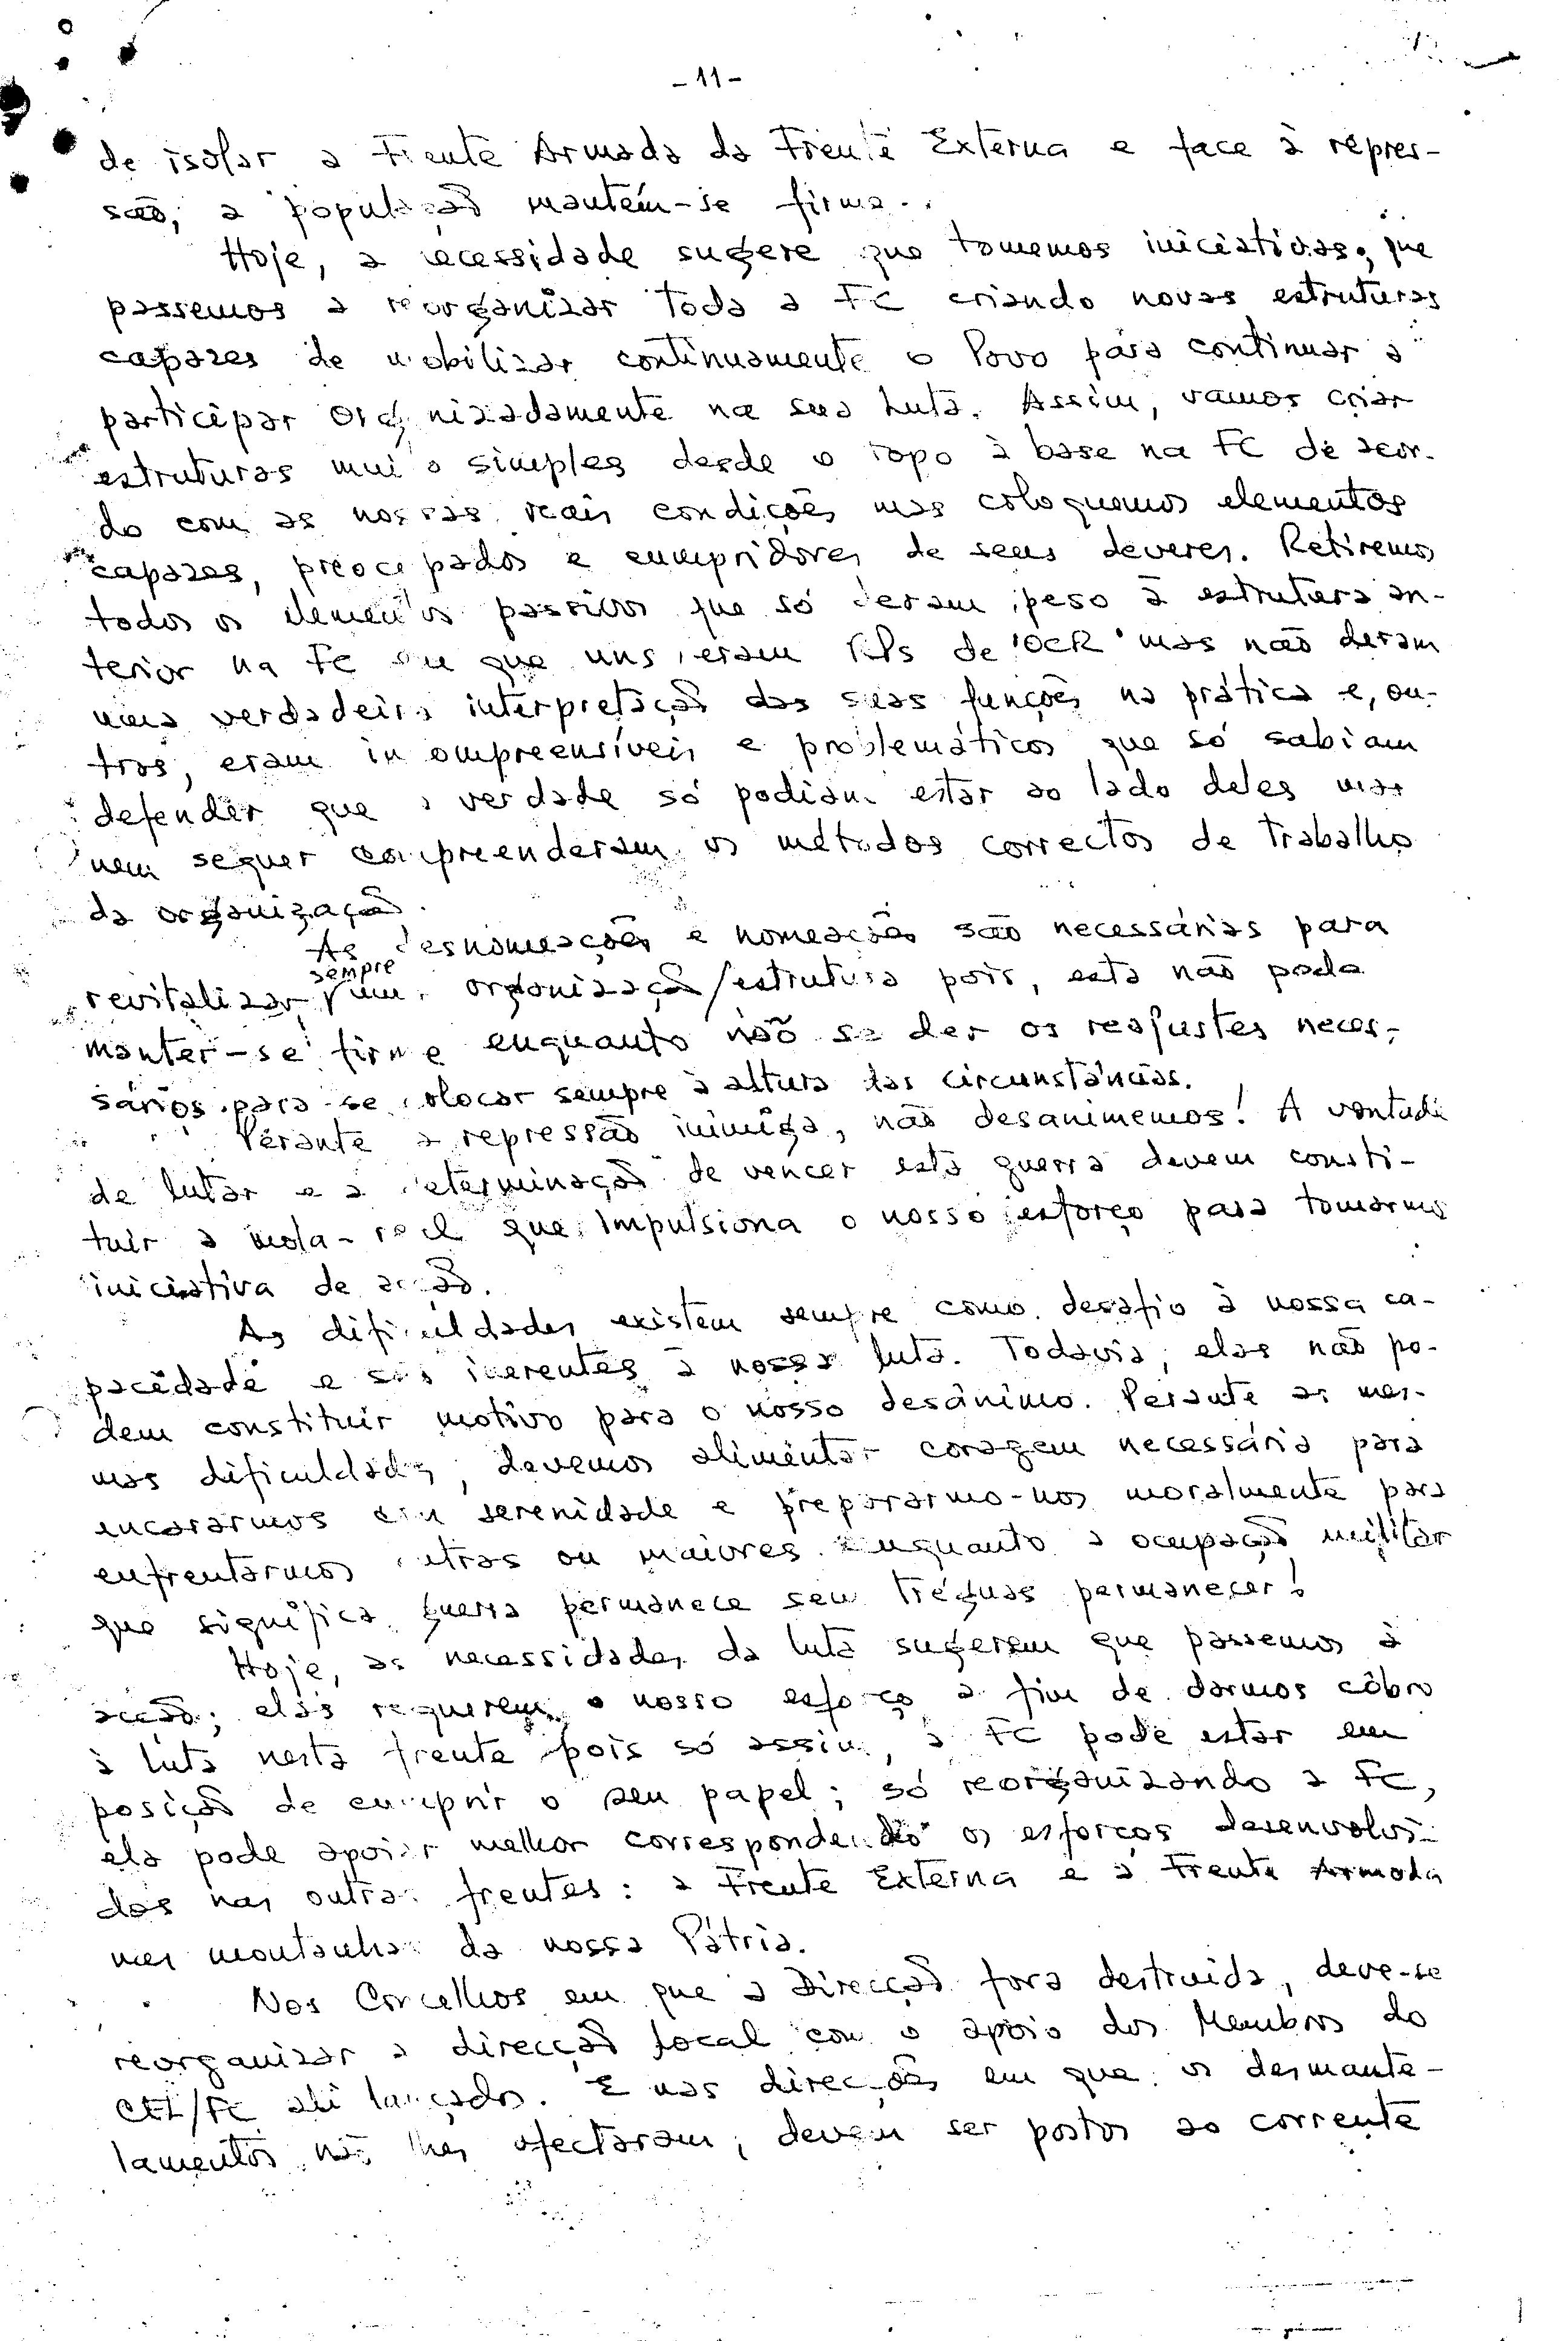 - 11 -
de isolar a Frente Armada da Frente Externa e face à repres-
são, a população mantém-se firme.
Hoje, a necessidade sugere que tomemos iniciativas, que
passemos a reorganizar toda a FC criando novas estruturas
capazes de mobilizar continuamente o Povo para continuar a
participar organizadamente na sua Luta. Assim, vamos criar
estruturas muito simples desde o topo à base na FC de acor-
do com as nossas reais condições mas coloquemos elementos
capazes, preocupados e cumpridores de seus deveres. Retiremos
todos os elementos passivos que só deram peso à estrutura an-
terior na FC em que uns eram de "OCR" mas não deram
uma verdadeira interpretação das suas funções na prática e, ou-
tros, eram incompreensíveis e problemáticos que só sabiam
defender que a verdade só podiam estar ao lado deles mas
nem sequer compreenderam os métodos correctos de trabalho
da organização.
As desnomeações e nomeações são necessárias para
revitalizar sempre uma organização/estrutura pois, esta não pode
manter-se firme enquanto não se der os reajustes neces-
sários para se colocar sempre à altura das circunstâncias.
Perante a repressão inimiga, não desanimemos! A vontade
de lutar e a determinação de vencer esta guerra devem consti-
tuir a mola-real que impulsiona o nosso esforço para tomarmos
iniciativa de acção.
As dificuldades existem sempre como desafio à nossa ca-
pacidade e são inerentes à nossa luta. Todavia, elas não po-
dem constituir motivo para o nosso desânimo. Perante as mes-
mas dificuldades, devemos alimentar coragem necessária para
encararmos com serenidade e prepararmo-nos moralmente para
enfrentarmos outras ou maiores enquanto a ocupação militar
que significa guerra permanece sem tréguas permanecer!
Hoje, as necessidades da luta sugerem que passemos à
acção; elas requerem o nosso esforço a fim de darmos côbro
à luta nesta frente pois só assim, a FC pode estar em
posição de cumprir o seu papel; só reorganizando a FC,
ela pode apoiar melhor correspondendo os esforços desenvolvi-
dos nas outras frentes: a Frente Externa e a Frente Armada
nas montanhas da nossa Pátria.
Nos Concelhos em que a Direcção fora destruida, deve-se
reorganizar a direcção local com o apoio dos Membros do
CEL/FC ali lançados. E nas direcções em que os desmante-
lamentos não lhes afectaram, devem ser postos ao corrente